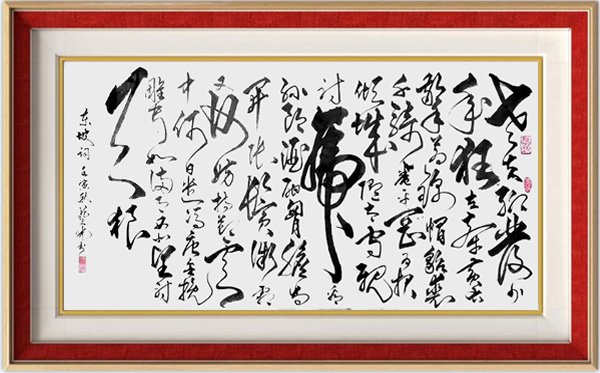 老夫聊发少
年狂左牵黄右
擎苍锦帽貂裘
千骑卷平冈为报
倾城随太守亲
射虎看
孙郎酒酣胸胆尚
开张鬓微霜
又何妨持节云
中何日遣冯唐会挽
雕弓如满月西北望射
天狼
东坡词壬寅秋书